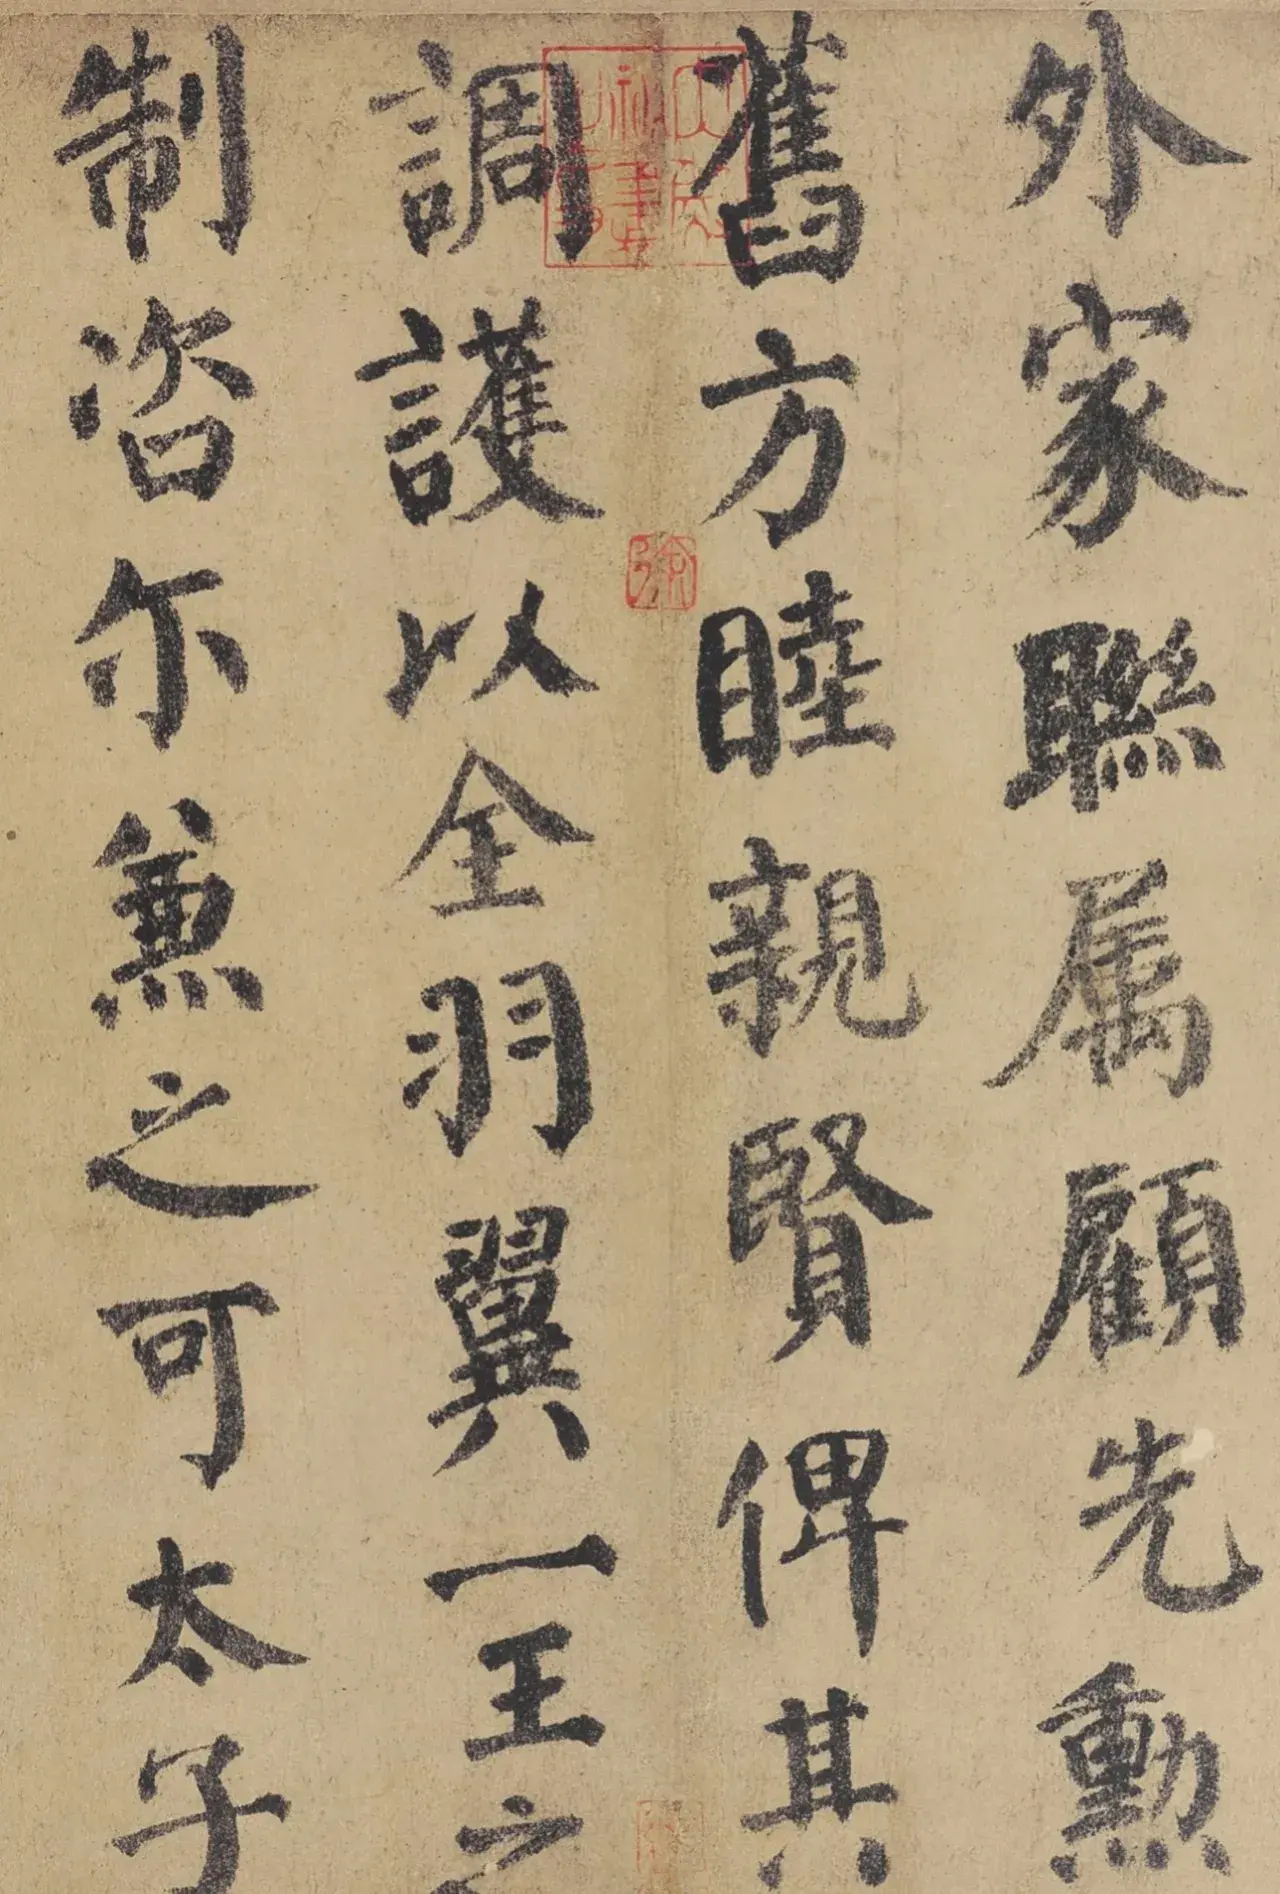 外家聯属顧先勳
舊方睦親賢俾其
調護以全羽翼一王之
制咨尓兼之可太子